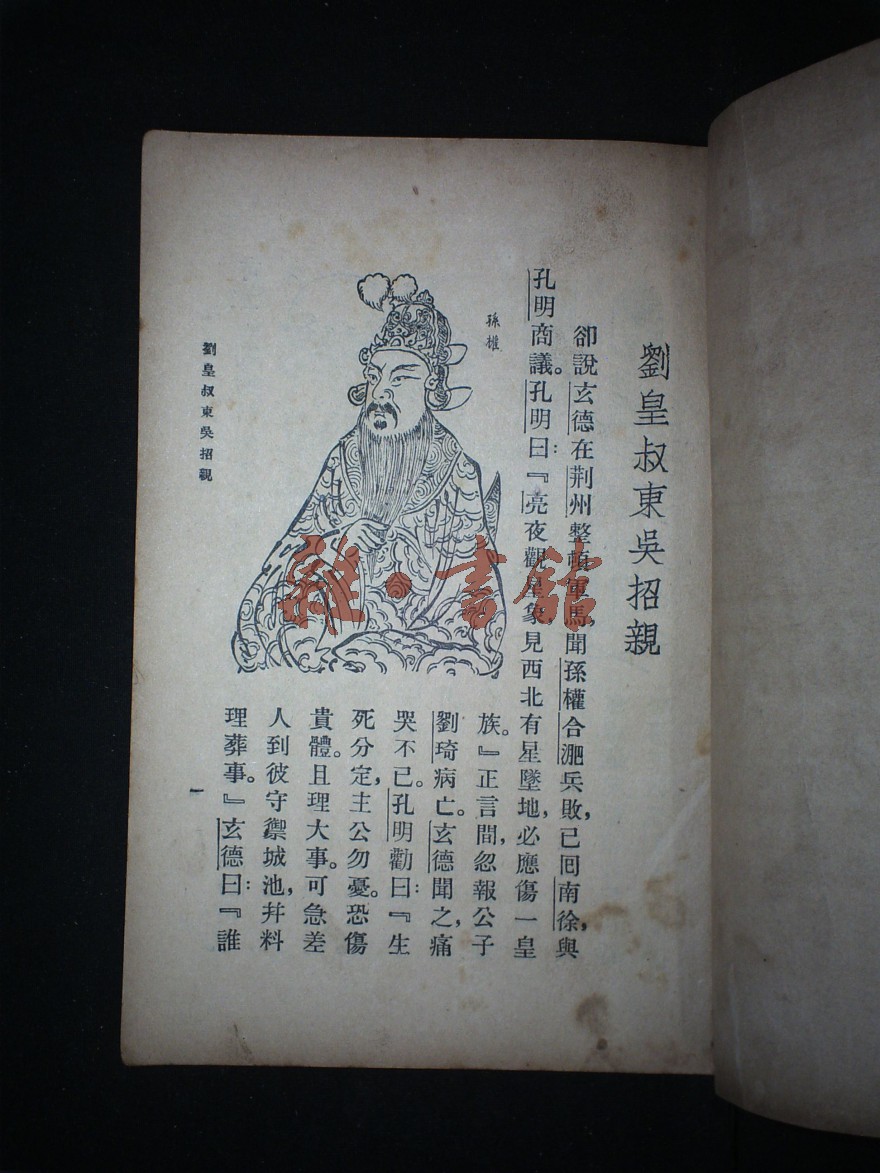 劉皇叔東吳招親
卻說玄德在荆州整頓軍馬，聞孫權合淝兵敗，已囘南徐，與
孔明商議。孔明曰：『亮夜觀星象，見西北有星墜地，必應傷一皇
族。』正言間，忽報公子
劉琦病亡。玄德聞之，痛
哭不已。孔明勸曰：『生
死分定，主公勿憂。恐傷
貴體。且理大事。可急差
人到彼守禦城池，幷料
理葬事。』玄德曰：『誰
孫權
劉皇叔東吳招親
一
雜·書館